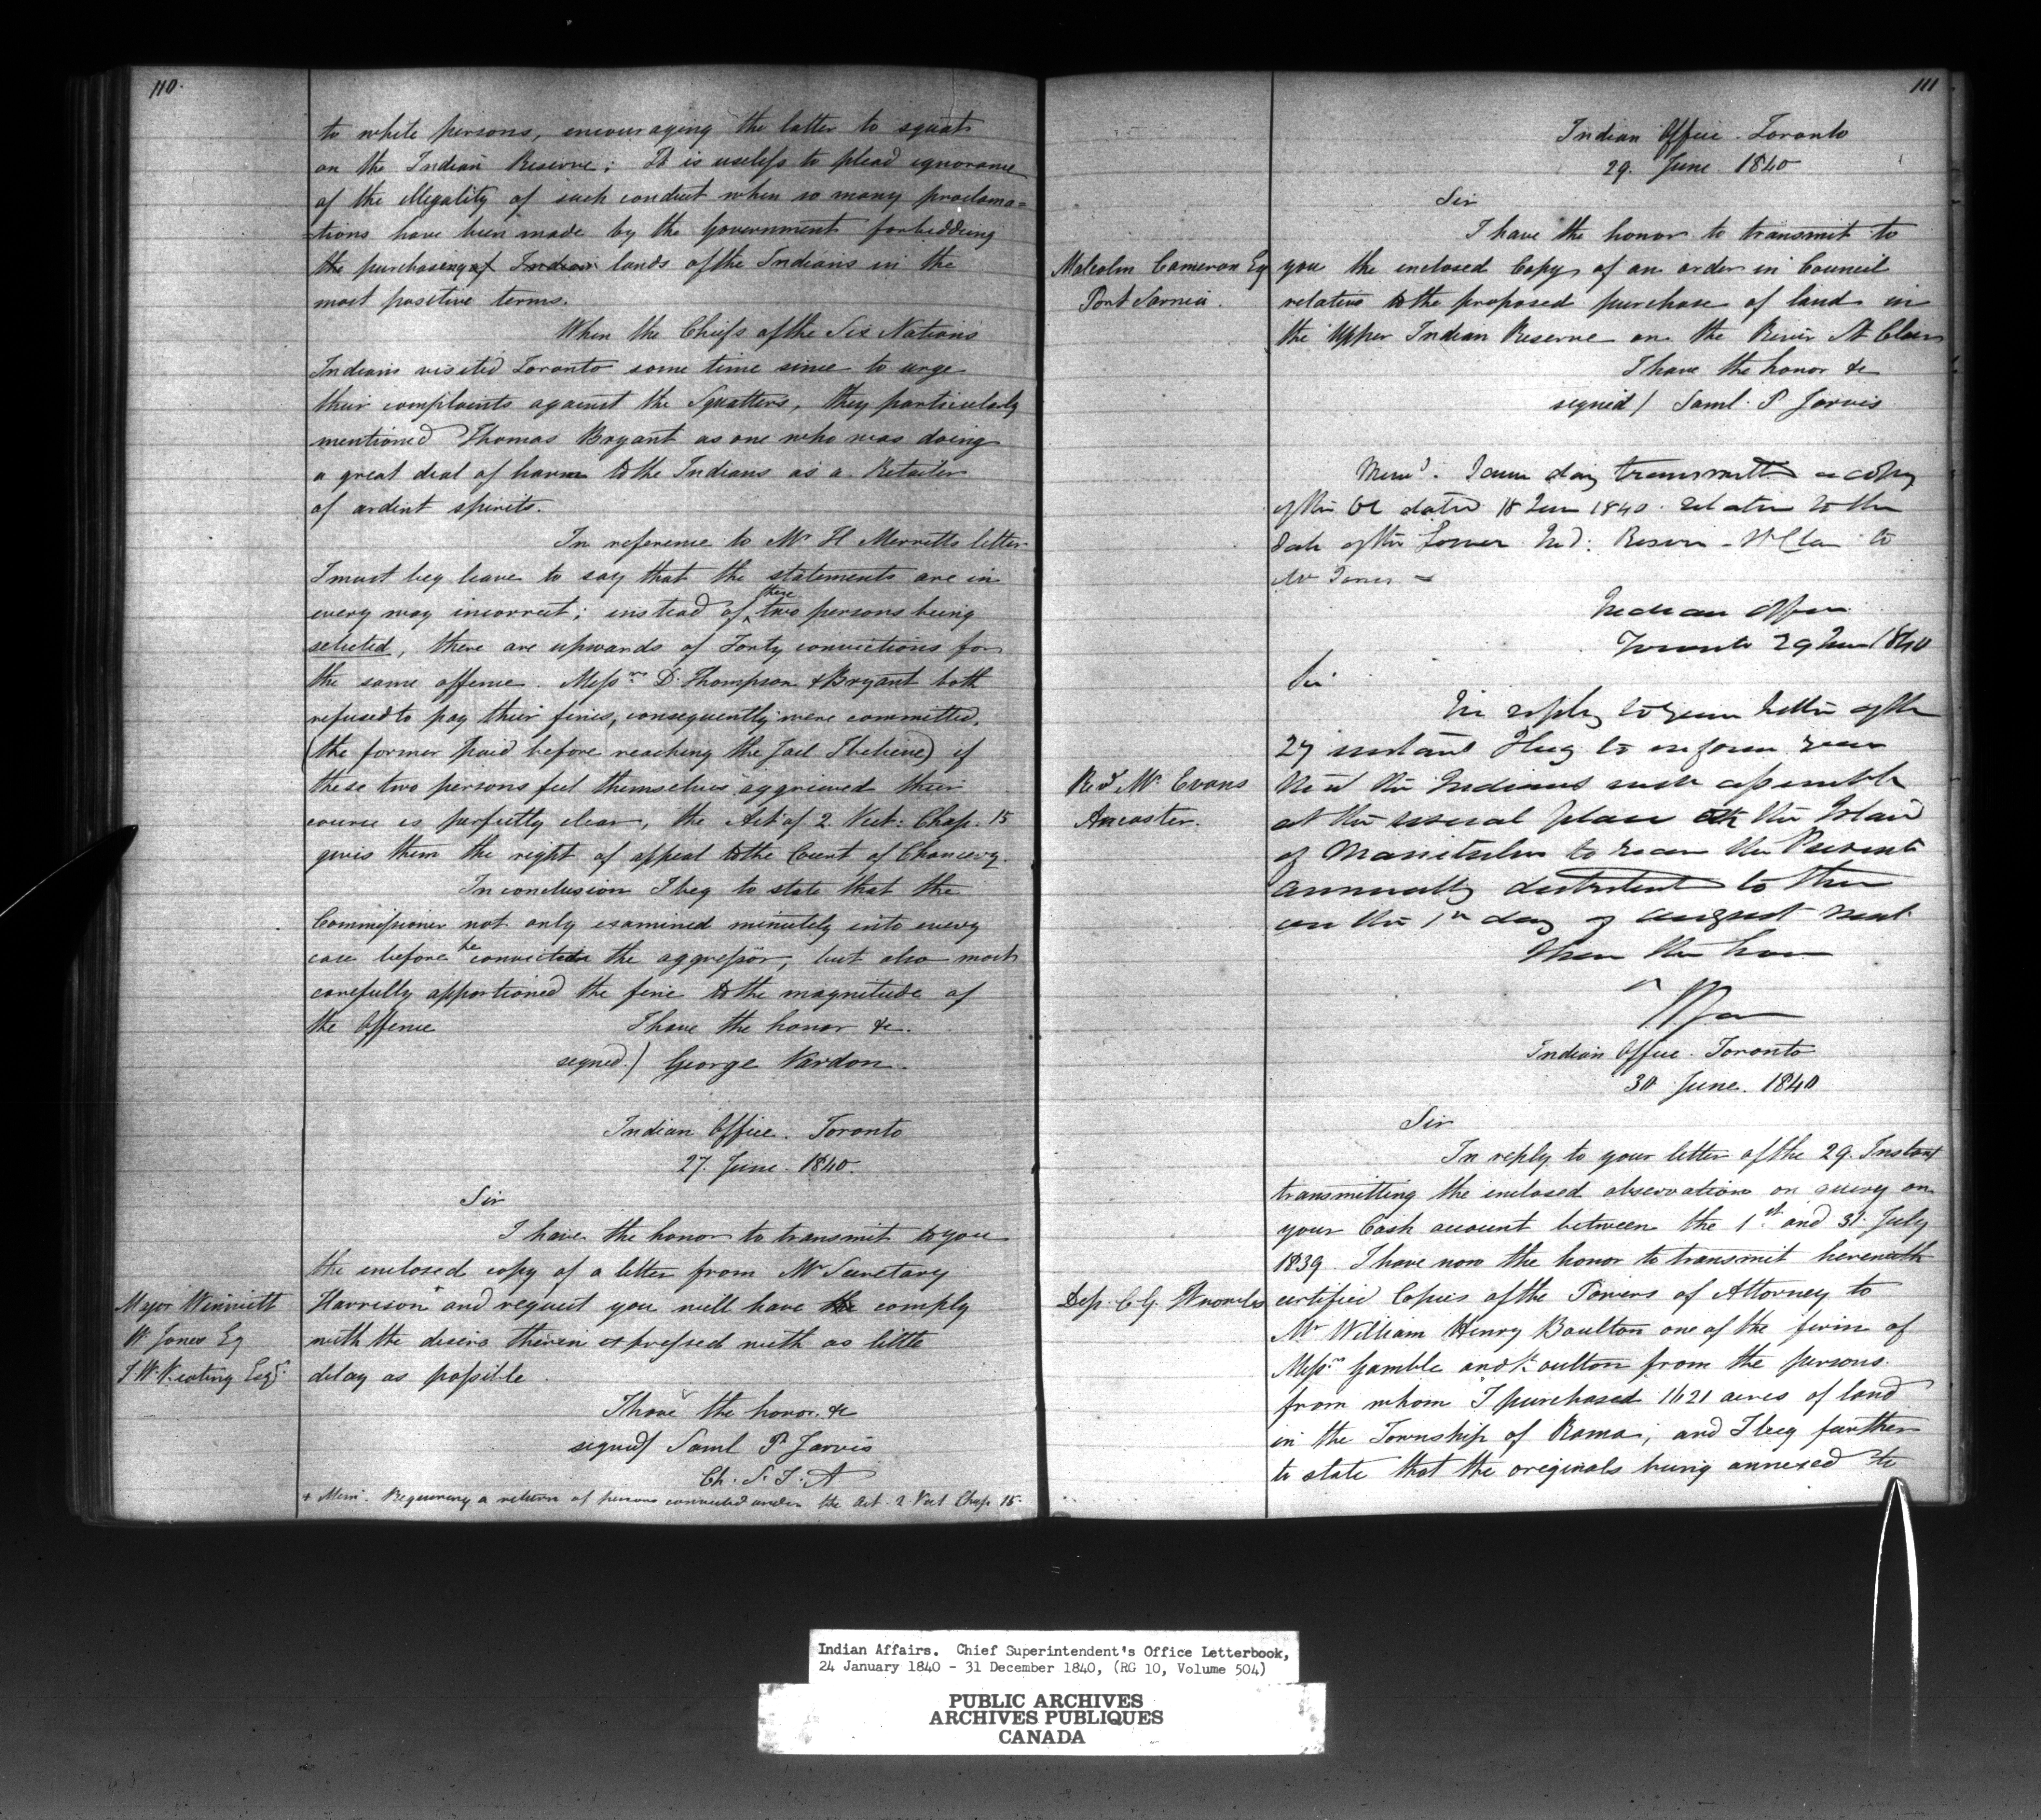 110.
to white persons, encouraging the latter to squat
on the Indian Reserve; It is useless to plead ignorance
of the illegality of such conduct when so many proclama=
=tions have been made by the Government forbidding
the purchasing of Indian lands of the Indians in the
most positive terms.
When the Chiefs of the Six Nations
Indians visited Toronto some time since to urge
their complaints against the Squatters, they particularly
mentioned Thomas Bryant as one who was doing
a great deal of harm to the Indians as a Retailer
of ardent spirits.
In reference to Mr H Merritts letter
I must beg leave to say that the statements are in
every way incorrect; instead of these two persons being
selected, there are upwards of Forty convictions for
the same offence. Messrs D. Thompson & Bryant both
refused to pay their fines, consequently were committed,
(the former paid before reaching the Jail I believe) if
these two persons feel themselves aggrieved their
course is perfectly clear, the Act of 2. Vict: Chap. 15
gives them the right of appeal to the Court of Chancery.
In conclusion I beg to state that the
Commissioner not only examined minutely into every
case before he convicted the aggressor, but also most
carefully apportioned the fine to the magnitude of
the Offence
I have the honor &c.
signed) George Vardon.
Indian Office. Toronto
27. June. 1840.
Sir
I have the honor to transmit to you
the enclosed copy of a letter from Mr Secretary
Major Winniett
Harrison+ and request you will have the comply
W. Jones Eq
with the desire therein expressed with as little
J W. Keating Esqr
delay as possible.
I have the honor. &c
signed/ Saml P. Jarvis
Ch. S. I. A
+ Mem. Requiring a return of persons convicted under the Act. 2. Vict Chap 15.
111
Indian Office. Toronto
29. June. 1840
Sir
I have the honor to transmit to
Malcolm Cameron Eq
you the enclosed Copy of an order in Council
Port Sarnia.
relative to the proposed purchase of land in
the Upper Indian Reserve on the River St Clair
I have the honor &c
signed/ Saml. P Jarvis
Memd. Same day transmitted a copy
of the OC dated 18 June 1840. relative to the
Sale of the Lower Ind: Reserve St Clair to
Mr Jones
Indian Office
Toronto 29 June 1840
Sir
In reply to your letter of the
27 instant I beg to inform you
Revd Mr. Evans
that the Indians will assemble
Ancaster.
at the usual place the Island
of Manitulin to receive the Presents
annually distributed to them
on the 1st day of August next.
I have the honor
Indian Office. Toronto
30 June. 1840
Sir
In reply to your letter of the 29. Instant
transmitting the enclosed observations on query on
your Cash account between the 1st and 31. July
1839. I have now the honor to transmit herewith
Dep. C. G.
certified Copies of the Powers of Attorney to
Mr William Henry Boulton one of the firm of
Messrs Gamble and Boulton from the persons.
from whom I purchased 1621 acres of land
in the Township of Rama; and I beg further
to state that the originals being annexed to
Indian Affairs. Chief Superintendent's Office Letterbook,
24 January 1840 - 31 December 1840, (RG 10, Volume 504)
PUBLIC ARCHIVES
ARCHIVES PUBLIQUES
CANADA